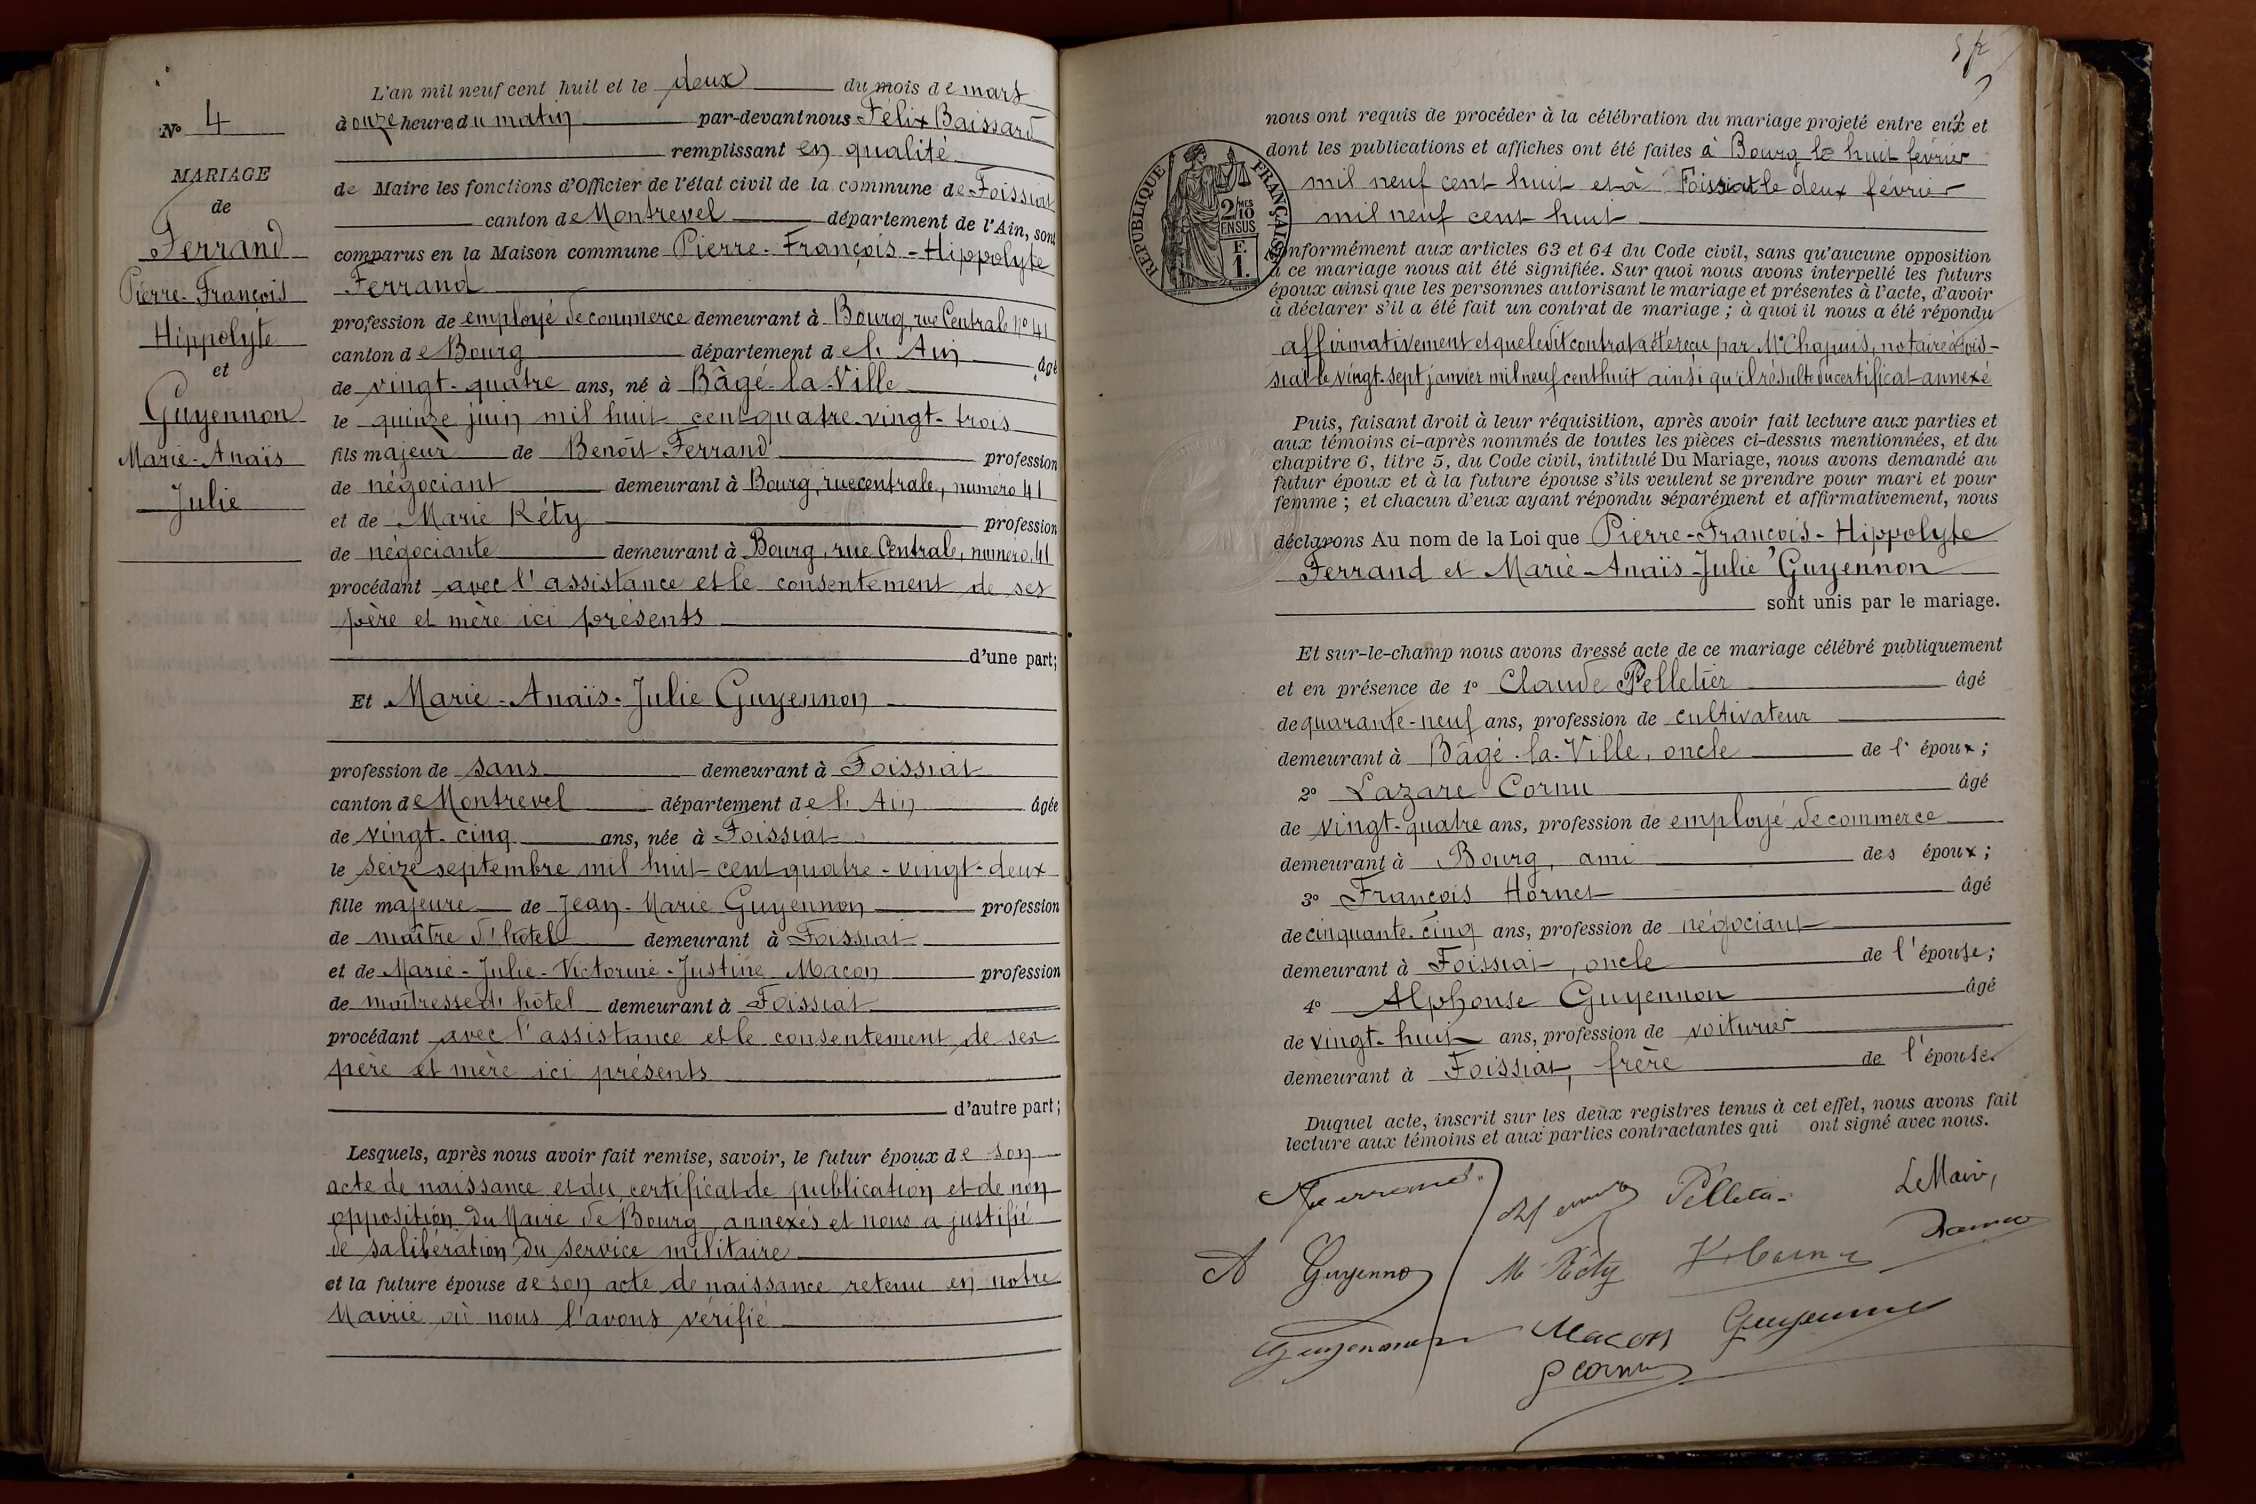 L'an mil neuf cent huit et le deux du mois de mars
No 4
à onze heure du matin par-devant nous Félix Baissard
remplissant en qualité
MARIAGE
de Maire les fonctions d'Officier de l'état civil de la commune de Foissiat
de
canton de Montrevel département de l'Ain, sont
Ferrand
comparus en la Maison commune Pierre-François-Hippolyte
Pierre-François
Ferrand
Hippolyte
profession de employé de commerce demeurant à Bourg, rue Centrale No 41
et
canton de Bourg département de l'Ain âgé
de vingt-quatre ans, né à Bâgé-la-Ville
Guyennon
le quinze juin mil huit cent quatre-vingt-trois
Marie-Anaïs
fils majeur de Benoît Ferrand profession
Julie
de négociant demeurant à Bourg, rue centrale, numéro 41
et de Marie Réty profession
de négociante demeurant à Bourg, rue Centrale, numéro 41
procédant avec l'assistance et le consentement de ses
père et mère ici présents
d'une part;
Et Marie-Anaïs-Julie Guyennon
profession de sans demeurant à Foissiat
canton de Montrevel département de l'Ain âgée
de vingt-cinq ans, née à Foissiat
le seize septembre mil huit cent quatre-vingt-deux
fille majeure de Jean-Marie Guyennon profession
de maître d'hôtel demeurant à Foissiat
et de Marie-Julie-Victorine-Justine Macon profession
de maîtresse d'hôtel demeurant à Foissiat
procédant avec l'assistance et le consentement de ses
père et mère ici présents
d'autre part;
Lesquels, après nous avoir fait remise, savoir, le futur époux de son
acte de naissance et du certificat de publication et de non
opposition du Maire de Bourg, annexés et nous a justifié
de sa libération du service militaire
et la future épouse de son acte de naissance retenu en notre
Mairie où nous l'avons vérifié
nous ont requis de procéder à la célébration du mariage projeté entre eux et
dont les publications et affiches ont été faites à Bourg le huit février
mil neuf cent huit et à Foissiat le deux février
mil neuf cent huit
RÉPUBLIQUE FRANÇAISE
2/10 MES
EN SUS
F.
1.
conformément aux articles 63 et 64 du Code civil, sans qu'aucune opposition
à ce mariage nous ait été signifiée. Sur quoi nous avons interpellé les futurs
époux ainsi que les personnes autorisant le mariage et présentes à l'acte, d'avoir
à déclarer s'il a été fait un contrat de mariage; à quoi il nous a été répondu
affirmativement et que ledit contrat a été reçu par Me Chapuis, notaire à Fois-
siat le vingt-sept janvier mil neuf cent huit ainsi qu'il résulte du certificat annexé
Puis, faisant droit à leur réquisition, après avoir fait lecture aux parties et
aux témoins ci-après nommés de toutes les pièces ci-dessus mentionnées, et du
chapitre 6, titre 5, du Code civil, intitulé Du Mariage, nous avons demandé au
futur époux et à la future épouse s'ils veulent se prendre pour mari et pour
femme; et chacun d'eux ayant répondu séparément et affirmativement, nous
déclarons Au nom de la Loi que Pierre-François-Hippolyte
Ferrand et Marie-Anaïs-Julie Guyennon
sont unis par le mariage.
Et sur-le-champ nous avons dressé acte de ce mariage célébré publiquement
et en présence de 1o Claude Pelletier âgé
de quarante-neuf ans, profession de cultivateur
demeurant à Bâgé-la-Ville, oncle de l'époux;
2o Lazare Cornu âgé
de vingt-quatre ans, profession de employé de commerce
demeurant à Bourg, ami des époux;
3o François Hornet âgé
de cinquante-cinq ans, profession de négociant
demeurant à Foissiat, oncle de l'épouse;
4o Alphonse Guyennon âgé
de vingt-huit ans, profession de voiturier
demeurant à Foissiat, frère de l'épouse.
Duquel acte, inscrit sur les deux registres tenus à cet effet, nous avons fait
lecture aux témoins et aux parties contractantes qui ont signé avec nous.
Ferrand Le Maire,
A Guyennon M Réty
Guyennon Macon
Cornu